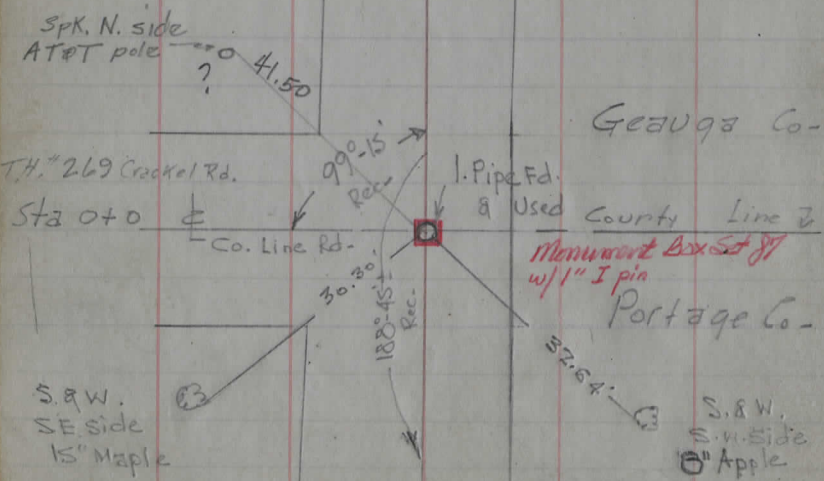 Spk. N. side
AT&T pole
?
41.50
Geauga Co-
T.H. #269 Crackel Rd.
99°-15'
Rec-
1. Pipe Fd.
& Used
Sta 0+0 ℄
Co. Line Rd-
County Line
Monument Box Set 87
w/ 1" I pin
30.30
188°-45'±
Rec-
Portage Co-
32.64'
S. & W.
SE. Side
15" Maple
S. & W.
S.W. Side
8" Apple